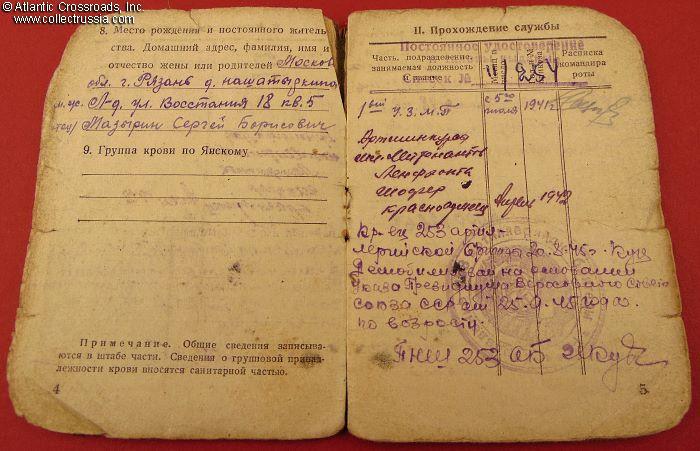 © Atlantic Crossroads, Inc.
www.collectrussia.com
8. Место рождения и постоянного житель-
ства. Домашний адрес, фамилия, имя и
отчество жены или родителей Москов
обл. г. Рязань д.
Л-д. ул. Восстания 18 кв. 5
Мазырин Сергей Борисович
9. Группа крови по Янскому
Примечание. Общие сведения записыва-
ются в штабе части. Сведения о групповой принад-
лежности крови вносятся санитарной частью.
4
II. Прохождение службы
Постоянное удостоверение
Часть, подразделение,
занимаемая должность
и звание
Расписка
командира
роты
1вый У.З.М.П с 5го июля 1941г
Ленфронта
шофер
красноармеец Апрель 1942
253 артил-
лерийской бригады
Демобилизован на основании
Указа Президиума Верховного Совета
Союза ССР от 25.9.45 года
по возрасту.
ПНШ 253 АБ
5